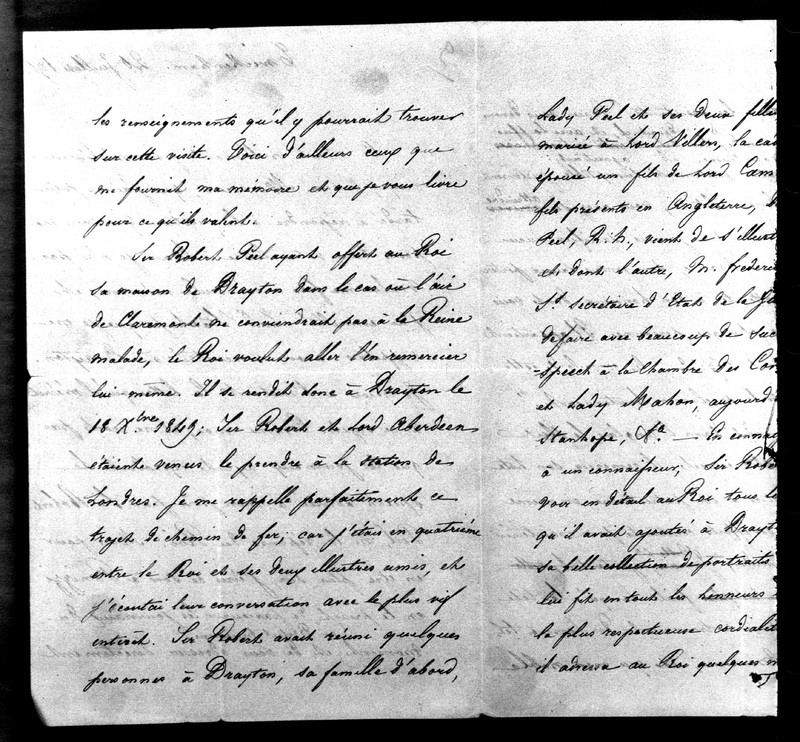 les renseignements qu'il y pourrait trouver
sur cette visite. Voici d'ailleurs ceux que
me fournit ma mémoire et que je vous livre
pour ce qu'ils valent.
Sir Robert Peel ayant offert au Roi
sa maison de Drayton dans le cas où l'air
de Claremont ne conviendrait pas à la Reine
malade, le Roi voulut aller l'en remercier
lui même. Il se rendit donc à Drayton le
18 Xbre 1849; Sir Robert et Lord Aberdeen
étaient venus le prendre à la station de
Londres. Je me rappelle parfaitement ce
trajet de chemin de fer, car j'étais en quatrième
entre le Roi et ses deux illustres amis, et
j'écoutai leur conversation avec le plus vif
intérêt. Sir Robert avait réuni quelques
personnes à Drayton, sa famille d'abord,
Lady Peel et ses deux fille
mariée à Lord Villers, la cad
épouse un fils de Lord Cam
fils présents en Angleterre,
Peel, R. N., vient de s'illust
et dont l'autre, M. frederic
St. secrétaire d'Etat de la
de faire avec beaucoup de suc
speech à la Chambre des Com
et Lady Mahon, aujourd
Stanhope, &a. — En connai
à un connaisseur, Sir Robe
voir en détail au Roi tous le
qu'il avait ajoutés à Drayto
sa belle collection de portraits
lui fit en tout les honneurs
la plus respectueuse cordialité
il adressa au Roi quelques m